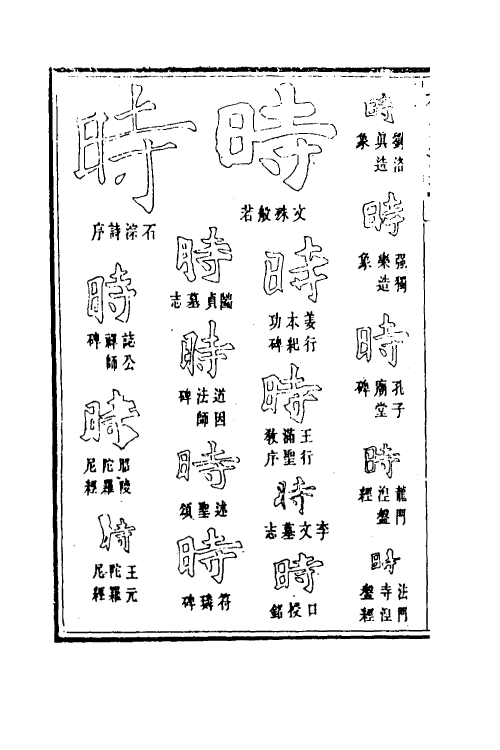 時
劉洛眞造象
時
强獨樂造象
時
孔子廟堂碑
時
龍門涅盤經
時
法門寺涅盤經
時
文殊般若
時
姜行本紀功碑
時
王行滿聖教序
時
李文墓志
時
口授銘
時
貞墓志
時
道因法師碑
時
述聖頌
時
符璘碑
時
石淙詩序
時
誌公禪師碑
時
陵陀羅尼經
時
王元陀羅尼經